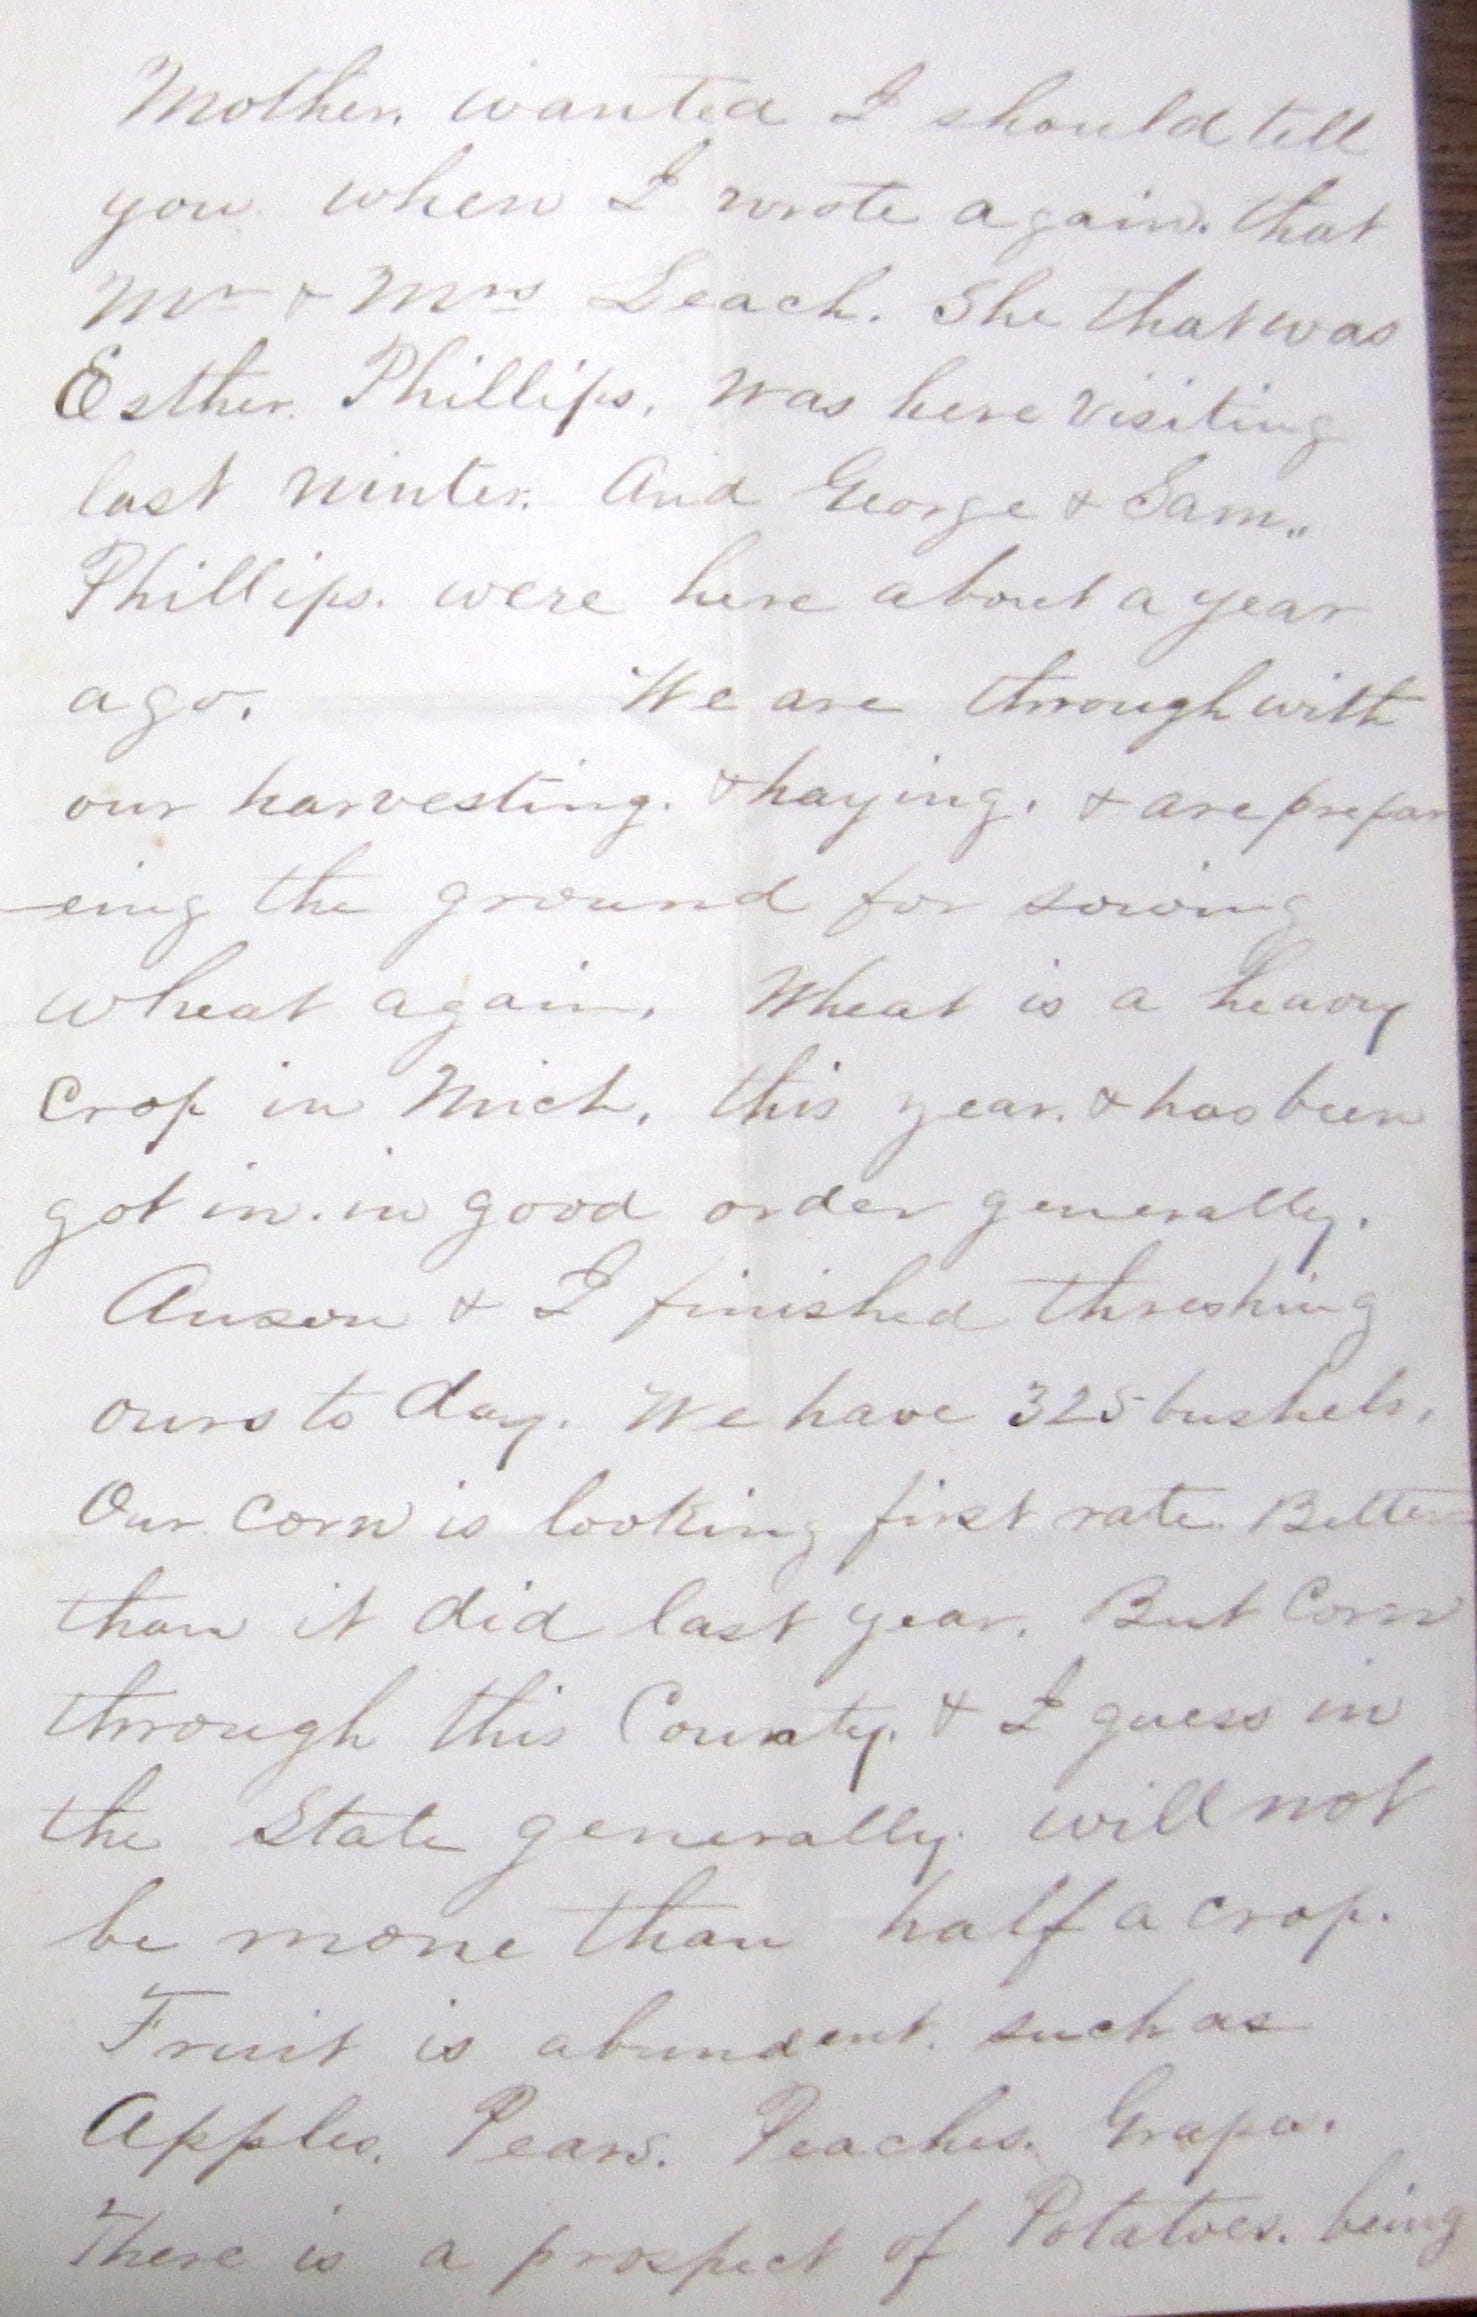 Mother. wanted I should tell
you when I wrote again. that
Mr & Mrs Leach. She that was
Esther. Phillips, was here visiting
last winter. And George & Sam,,
Phillips. were here about a year
ago. We are through with
our harvesting. & haying. & are prepar
-eing the ground for sowing
wheat again, Wheat is a heavy
Crop in Mich, this year. & has been
got in. in good order generally.
Anson & I finished threshing
ours to day. We have 325 bushels,
Our Corn is looking first rate. Better
than it did last year. But Corn
through this County. & I guess in
the State generally. will not
be more than half a crop.
Fruit is abundent. such as
Apples. Pears. Peaches. Grapes.
There is a prospect of Potatoes. being